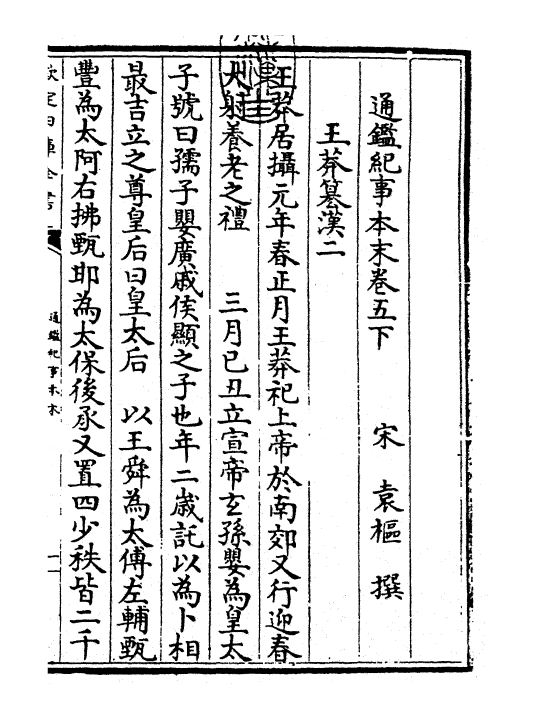 通鑑紀事本末卷五下　宋　袁樞　撰
王莽簒漢二
王莽居攝元年春正月王莽祀上帝於南郊又行迎春
大射養老之禮　三月已丑立宣帝玄孫嬰為皇太
子號曰孺子嬰廣戚侯顯之子也年二歲託以為卜相
最吉立之尊皇后曰皇太后　以王舜為太傅左輔甄
豐為太阿右拂甄邯為太保後承又置四少秩皆二千
欽定四庫全書
通鑑紀事本末